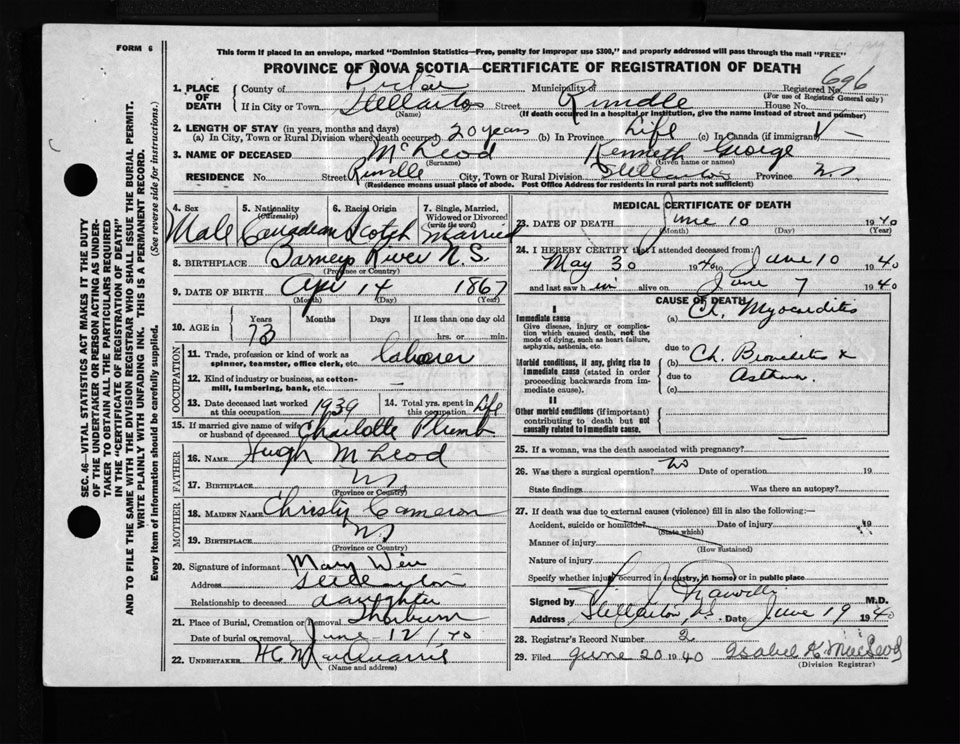 FORM 6
This form if placed in an envelope, marked "Dominion Statistics—Free, penalty for improper use $300," and properly addressed will pass through the mail "FREE"
PROVINCE OF NOVA SCOTIA—CERTIFICATE OF REGISTRATION OF DEATH
696
1. PLACE OF DEATH
County of Pictou Municipality of Registered No.
(For use of Registrar General only)
If in City or Town Stellarton Street Rundle House No.
(Name) (If death occurred in a hospital or institution, give the name instead of street and number)
2. LENGTH OF STAY (in years, months and days)
(a) In City, Town or Rural Division where death occurred 20 years (b) In Province Life (c) In Canada (if immigrant)
3. NAME OF DECEASED McLeod Kenneth George
(Surname) (Given name or names)
RESIDENCE No. Street Rundle City, Town or Rural Division Stellarton Province N.S.
(Residence means usual place of abode. Post Office Address for residents in rural parts not sufficient)
4. Sex 5. Nationality (Citizenship) 6. Racial Origin 7. Single, Married, Widowed or Divorced (write the word)
Male Canadian Scotch Married
8. BIRTHPLACE Barneys River N.S.
(Province or Country)
9. DATE OF BIRTH Apr 14 1867
(Month) (Day) (Year)
10. AGE in Years Months Days If less than one day old
73 hrs. or min.
OCCUPATION
11. Trade, profession or kind of work as spinner, teamster, office clerk, etc. Laborer
12. Kind of industry or business, as cotton-mill, lumbering, bank, etc. —
13. Date deceased last worked at this occupation 1939 14. Total yrs. spent in this occupation Life
15. If married give name of wife or husband of deceased Charlotte Plumb
FATHER
16. NAME Hugh McLeod
17. BIRTHPLACE N.S.
(Province or Country)
MOTHER
18. MAIDEN NAME Christy Cameron
19. BIRTHPLACE N.S.
(Province or Country)
20. Signature of informant Mary Weir
Address Stellarton
Relationship to deceased daughter
21. Place of Burial, Cremation or Removal Thorburn
Date of burial or removal June 12/40
22. UNDERTAKER H C MacQuarrie
(Name and address)
MEDICAL CERTIFICATE OF DEATH
23. DATE OF DEATH June 10 1940
(Month) (Day) (Year)
24. I HEREBY CERTIFY that I attended deceased from:
May 30 1940 to June 10 1940
and last saw him alive on June 7 1940
CAUSE OF DEATH
I
Immediate cause (a) Ch. Myocarditis
Give disease, injury or complication which caused death, not the mode of dying, such as heart failure, asphyxia, asthenia, etc.
due to
Morbid conditions, if any, giving rise to immediate cause (stated in order proceeding backwards from immediate cause).
(b) Ch. Bronchitis &
due to Asthma.
(c)
II
Other morbid conditions (if important) contributing to death but not causally related to immediate cause.
25. If a woman, was the death associated with pregnancy?
26. Was there a surgical operation? No Date of operation 19
State findings Was there an autopsy?
27. If death was due to external causes (violence) fill in also the following:—
Accident, suicide or homicide? Date of injury 19
(State which)
Manner of injury
(How sustained)
Nature of injury
Specify whether injury occurred in industry, in home, or in public place
Signed by M.D.
Address Stellarton, N.S. Date June 19 1940
28. Registrar's Record Number 2
29. Filed June 20 1940 Isabel K MacLeod
(Division Registrar)
SEC. 46—VITAL STATISTICS ACT MAKES IT THE DUTY
OF THE UNDERTAKER OR PERSON ACTING AS UNDER-
TAKER TO OBTAIN ALL THE PARTICULARS REQUIRED
IN THE "CERTIFICATE OF REGISTRATION OF DEATH"
AND TO FILE THE SAME WITH THE DIVISION REGISTRAR WHO SHALL ISSUE THE BURIAL PERMIT.
WRITE PLAINLY WITH UNFADING INK. THIS IS A PERMANENT RECORD.
Every item of information should be carefully supplied. (See reverse side for instructions.)